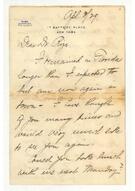 17 BATTERY PLACE
NEW YORK
Dear Mr.
I remained in Florida
longer than I expected to
but am now again in
town - I have thought
of you many times and
would very much like
to see you again.
Could you take lunch
with me each Monday?